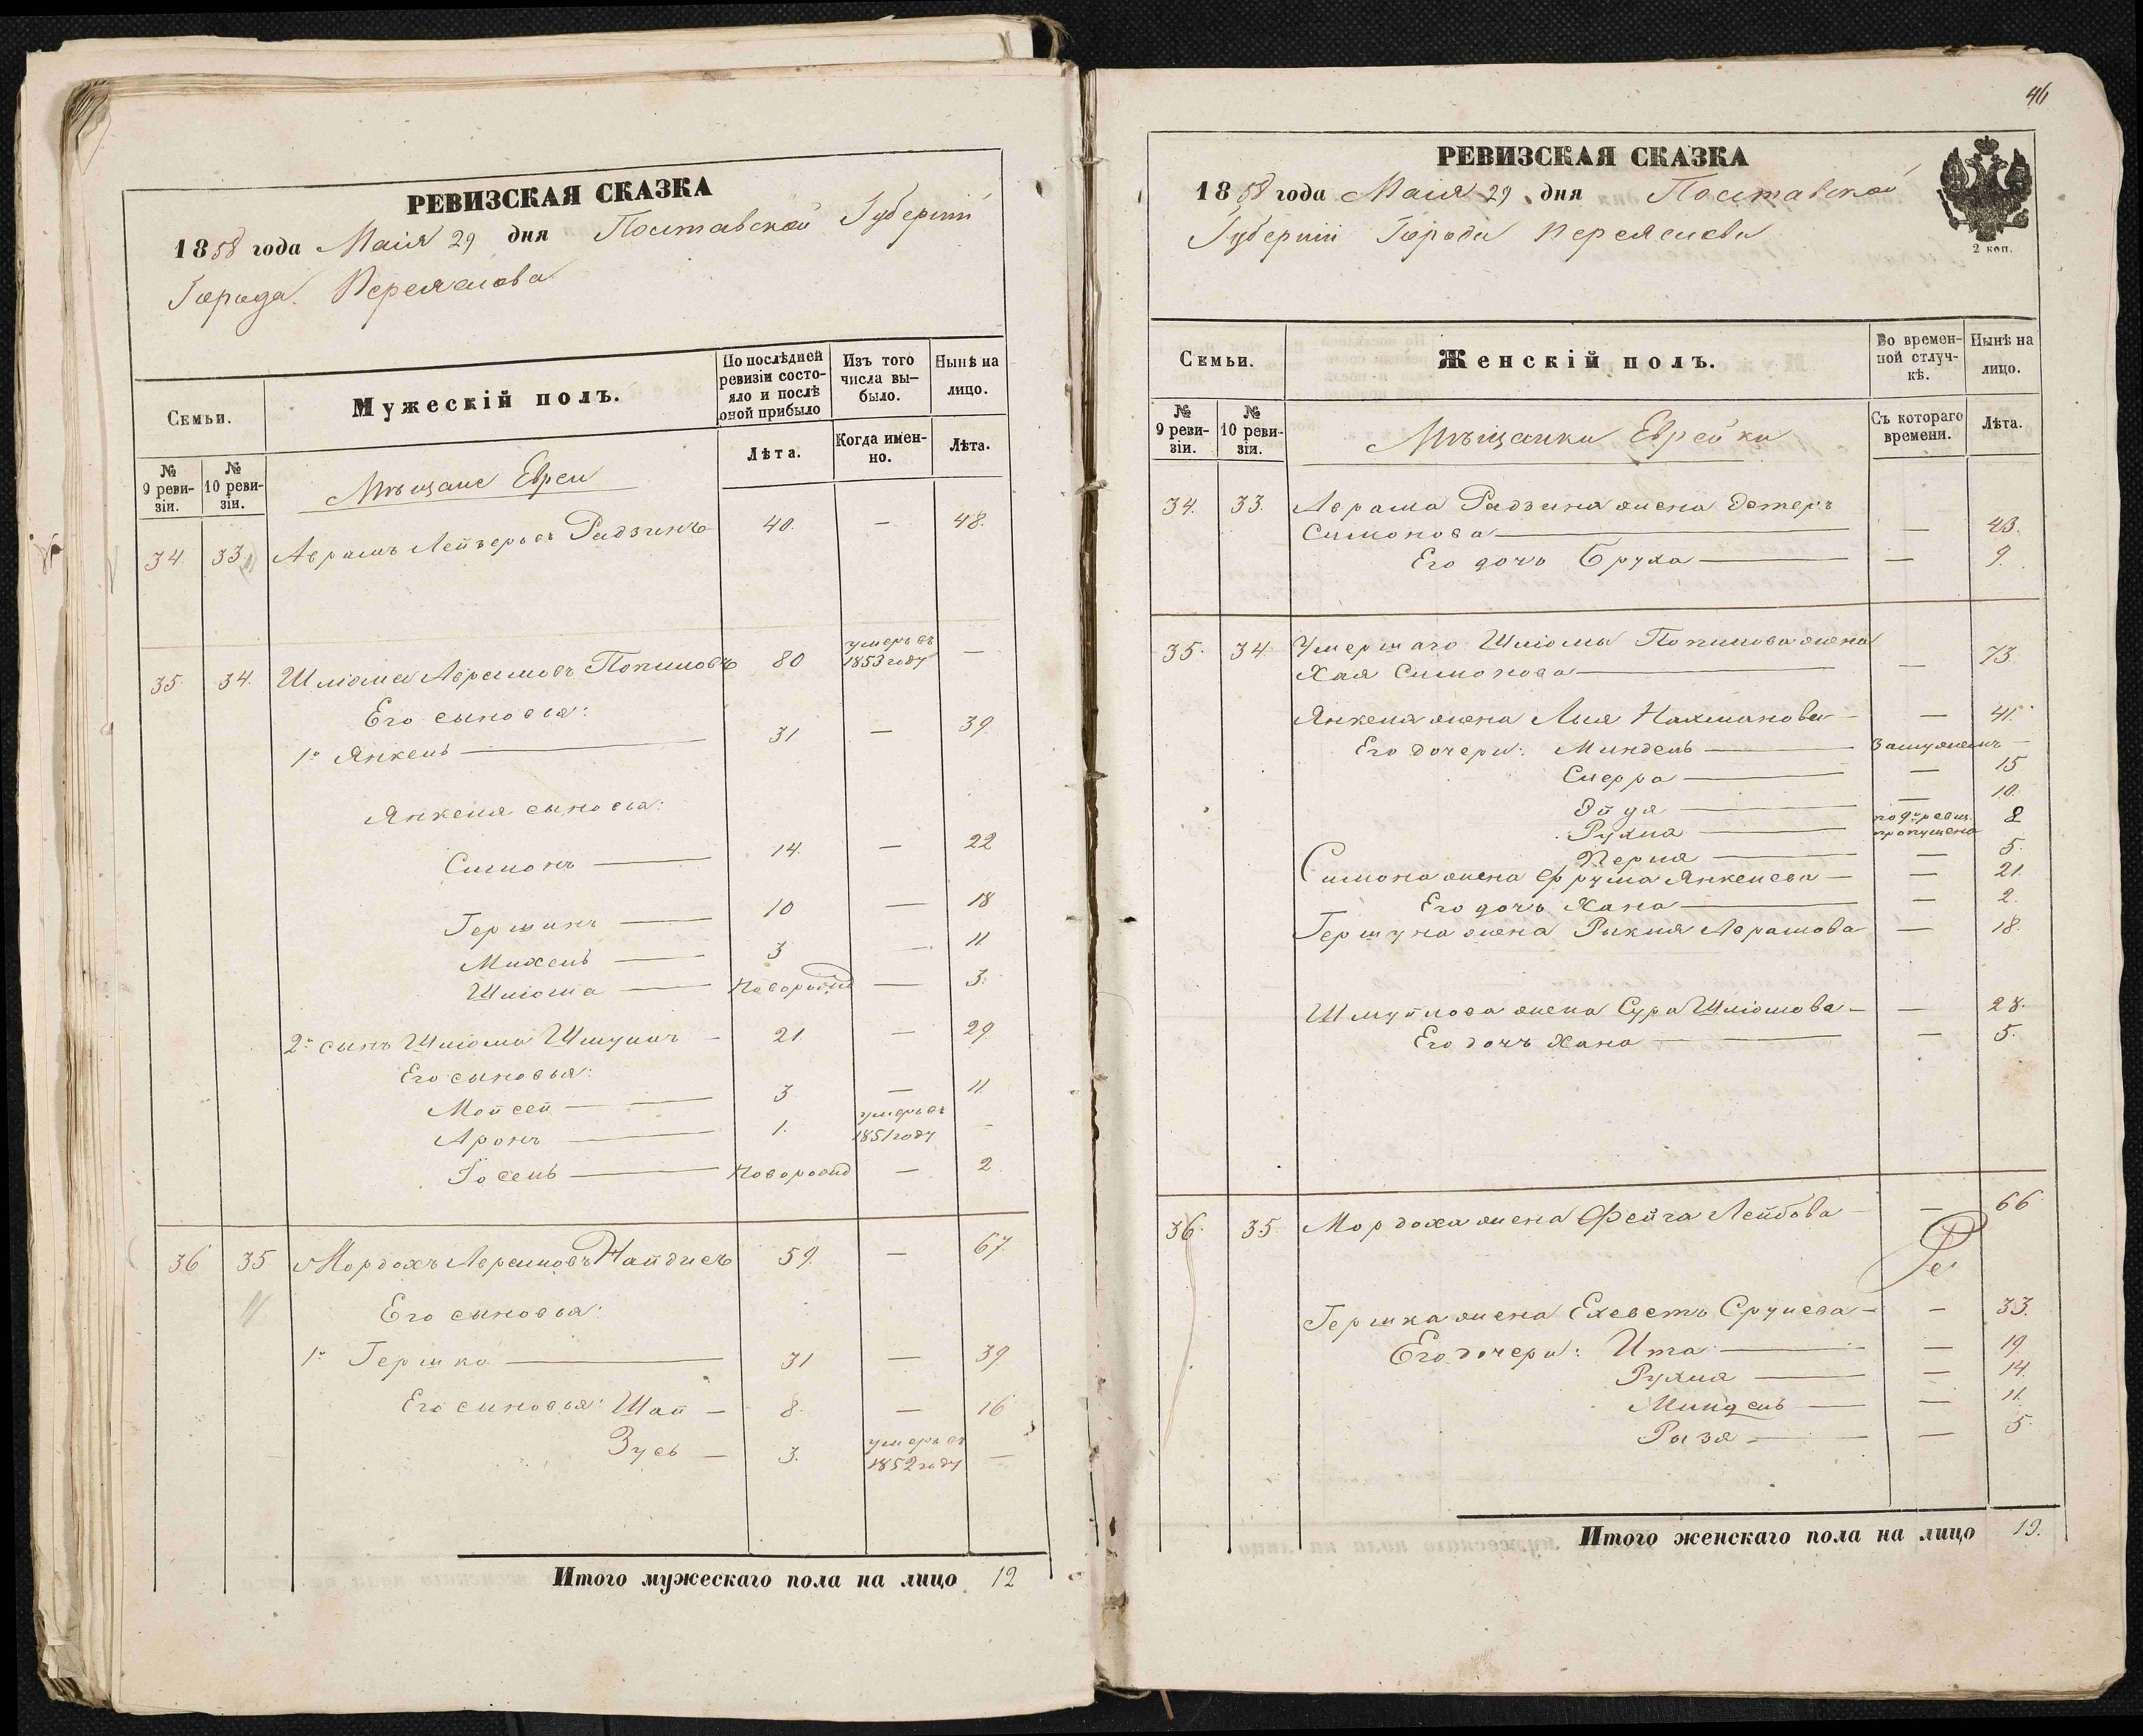 РЕВИЗСКАЯ СКАЗКА
1858 года Маія 29 дня Полтавской Губерніи
Города Переяслова
Семьи.
Мужескій полъ.
По послѣдней ревизіи состояло и послѣ оной прибыло
Изъ того числа выбыло.
Нынѣ на лицо.
№ 9 ревизіи.
№ 10 ревизіи.
Мѣщане Евреи
Лѣта.
Когда именно.
Лѣта.
34. 33. Аврамъ Лейзеровъ Радзинъ 40. — 48.
35. 34. Шліома Аврамовъ 80 умеръ въ 1853 году —
Его сыновья:
1й Янкель — 31 — 39
Янкеля сыновья:
Симонъ — 14. — 22
Гершинъ — 10 — 18
Михель — 3 — 11
Шліома — Новорожд — 3.
2й сынъ Шліома Шмуилъ — 21 — 29.
Его сыновья:
Мойсей — 3 — 11.
Аронъ — 1. умеръ въ 1851 году -
Іосель — Новорожд — 2.
36 35 Мордохъ Аврамовъ Найдисъ 59. — 67.
Его сыновья:
1й Гершко — 31 — 39
Его сыновья: Шай — 8. — 16
Зусь — 3. умеръ въ 1852 году —
Итого мужескаго пола на лицо 12
46
РЕВИЗСКАЯ СКАЗКА
1858 года Маія 29 дня Полтавской
Губерніи Города Переяслова
2 коп.
Семьи.
Женскій полъ.
Во временной отлучкѣ.
Нынѣ на лицо.
№ 9 ревизіи.
№ 10 ревизіи.
Мѣщанки Еврейки
Съ котораго времени.
Лѣта.
34. 33. Аврама Радзина жена Эстеръ
Симонова — — 43.
Его дочь Бруха — — 9.
35. 34 Умершаго Шліомы жена
Хая Симонова — — 73.
Янкеля жена Лия Нахманова — — 41.
Его дочери: Миндель — Замужемъ —
Смерра — — 15
Эйда — — 10.
Рухля — по 9й ревиз. пропущена 8
Перля — — 5.
Симона жена Фрума Янкелева — — 21.
Его дочь Хана — — 2.
Гершуна жена Рикля Аврамова — 18.
Шмуйлова жена Сура Шліомова — — 28.
Его дочь Хана — — 5.
36. 35. Мордоха жена Фейга Лейбова — — 66
Гершка жена Ехеветъ Срулева — — 33.
Его дочери: Ита — — 19.
Рухля — — 14.
Миндель — — 11.
Рызя — — 5.
Итого женскаго пола на лицо 19.